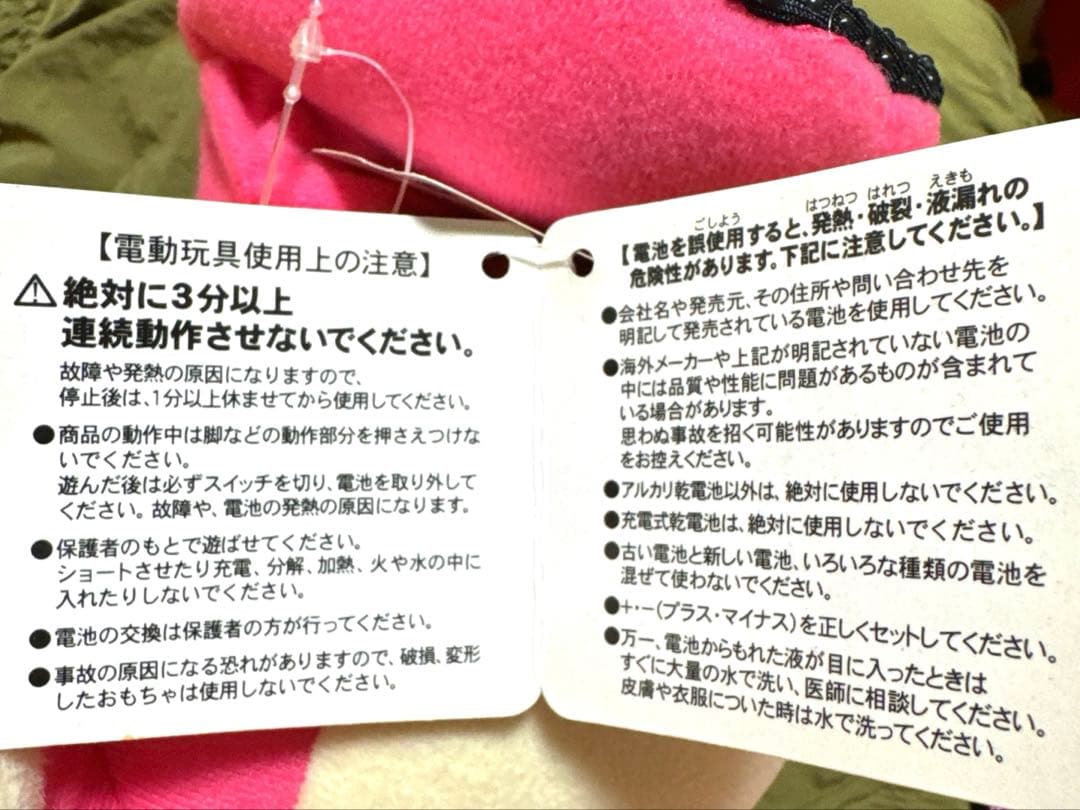 【電動玩具使用上の注意】
⚠絶対に3分以上
連続動作させないでください。
故障や発熱の原因になりますので、
停止後は、1分以上休ませてから使用してください。
●商品の動作中は脚などの動作部分を押さえつけな
いでください。
遊んだ後は必ずスイッチを切り、電池を取り外して
ください。故障や、電池の発熱の原因になります。
●保護者のもとで遊ばせてください。
ショートさせたり充電、分解、加熱、火や水の中に
入れたりしないでください。
●電池の交換は保護者の方が行ってください。
●事故の原因になる恐れがありますので、破損、変形
したおもちゃは使用しないでください。
ごしよう はつねつ はれつ えきも
【電池を誤使用すると、発熱・破裂・液漏れの
危険性があります。下記に注意してください。】
●会社名や発売元、その住所や問い合わせ先を
明記して発売されている電池を使用してください。
●海外メーカーや上記が明記されていない電池の
中には品質や性能に問題があるものが含まれて
いる場合があります。
思わぬ事故を招く可能性がありますのでご使用
をお控えください。
●アルカリ乾電池以外は、絶対に使用しないでください。
●充電式乾電池は、絶対に使用しないでください。
●古い電池と新しい電池、いろいろな種類の電池を
混ぜて使わないでください。
●+・−(プラス・マイナス)を正しくセットしてください。
●万一、電池からもれた液が目に入ったときは
すぐに大量の水で洗い、医師に相談してください。
皮膚や衣服についた時は水で洗ってください。